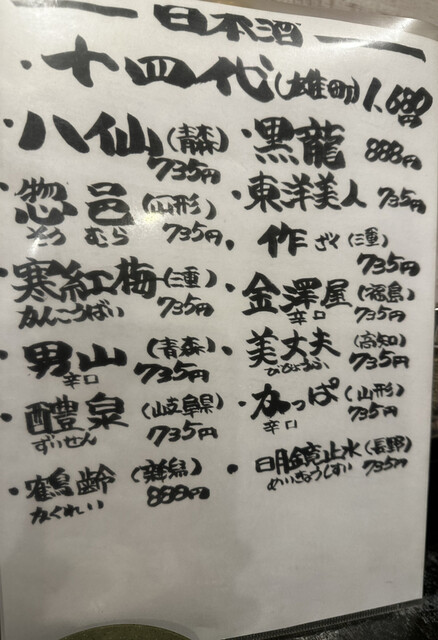 日本酒
・十四代(雄町) 1,680円
・八仙(青森)
735円
・惣邑(山形)
そう むら 735円
・寒紅梅(三重)
かんこうばい 735円
・男山(青森)
辛口 735円
・醴泉(岐阜県)
ずいせん 735円
・鶴齢(新潟)
かくれい 888円
・黒龍 888円
・東洋美人 735円
・作 ざく(三重)
735円
・金澤屋(福島)
辛口 735円
・美丈夫(高知)
びじょうふ 735円
・かっぱ(山形)
辛口 735円
・明鏡止水(長野)
めいきょうしすい 735円